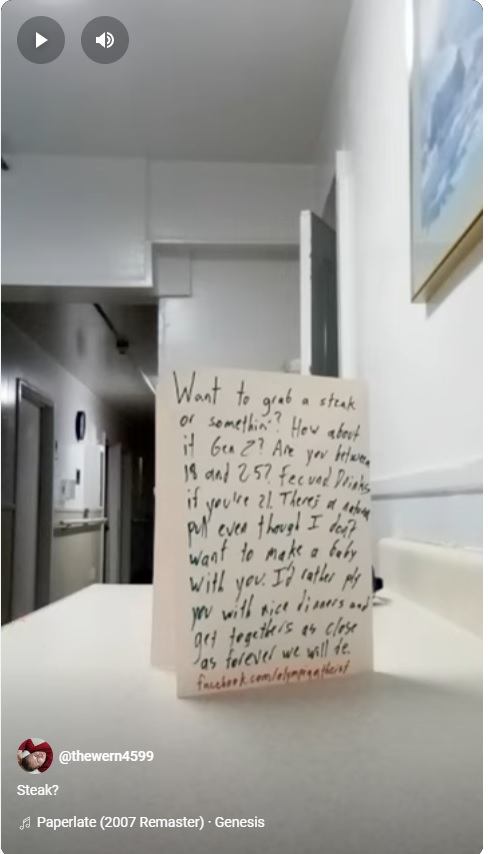 Want to grab a steak
or somethin'? How about
it Gen Z? Are you between
18 and 25? Fecund Drinks
if you're 21. There's a natural
pull even though I don't
want to make a baby
with you. I'd rather ply
you with nice dinners and
get togethers as close
as forever we will be.
facebook.com/olympigatheist
@thewern4599
Steak?
Paperlate (2007 Remaster) · Genesis